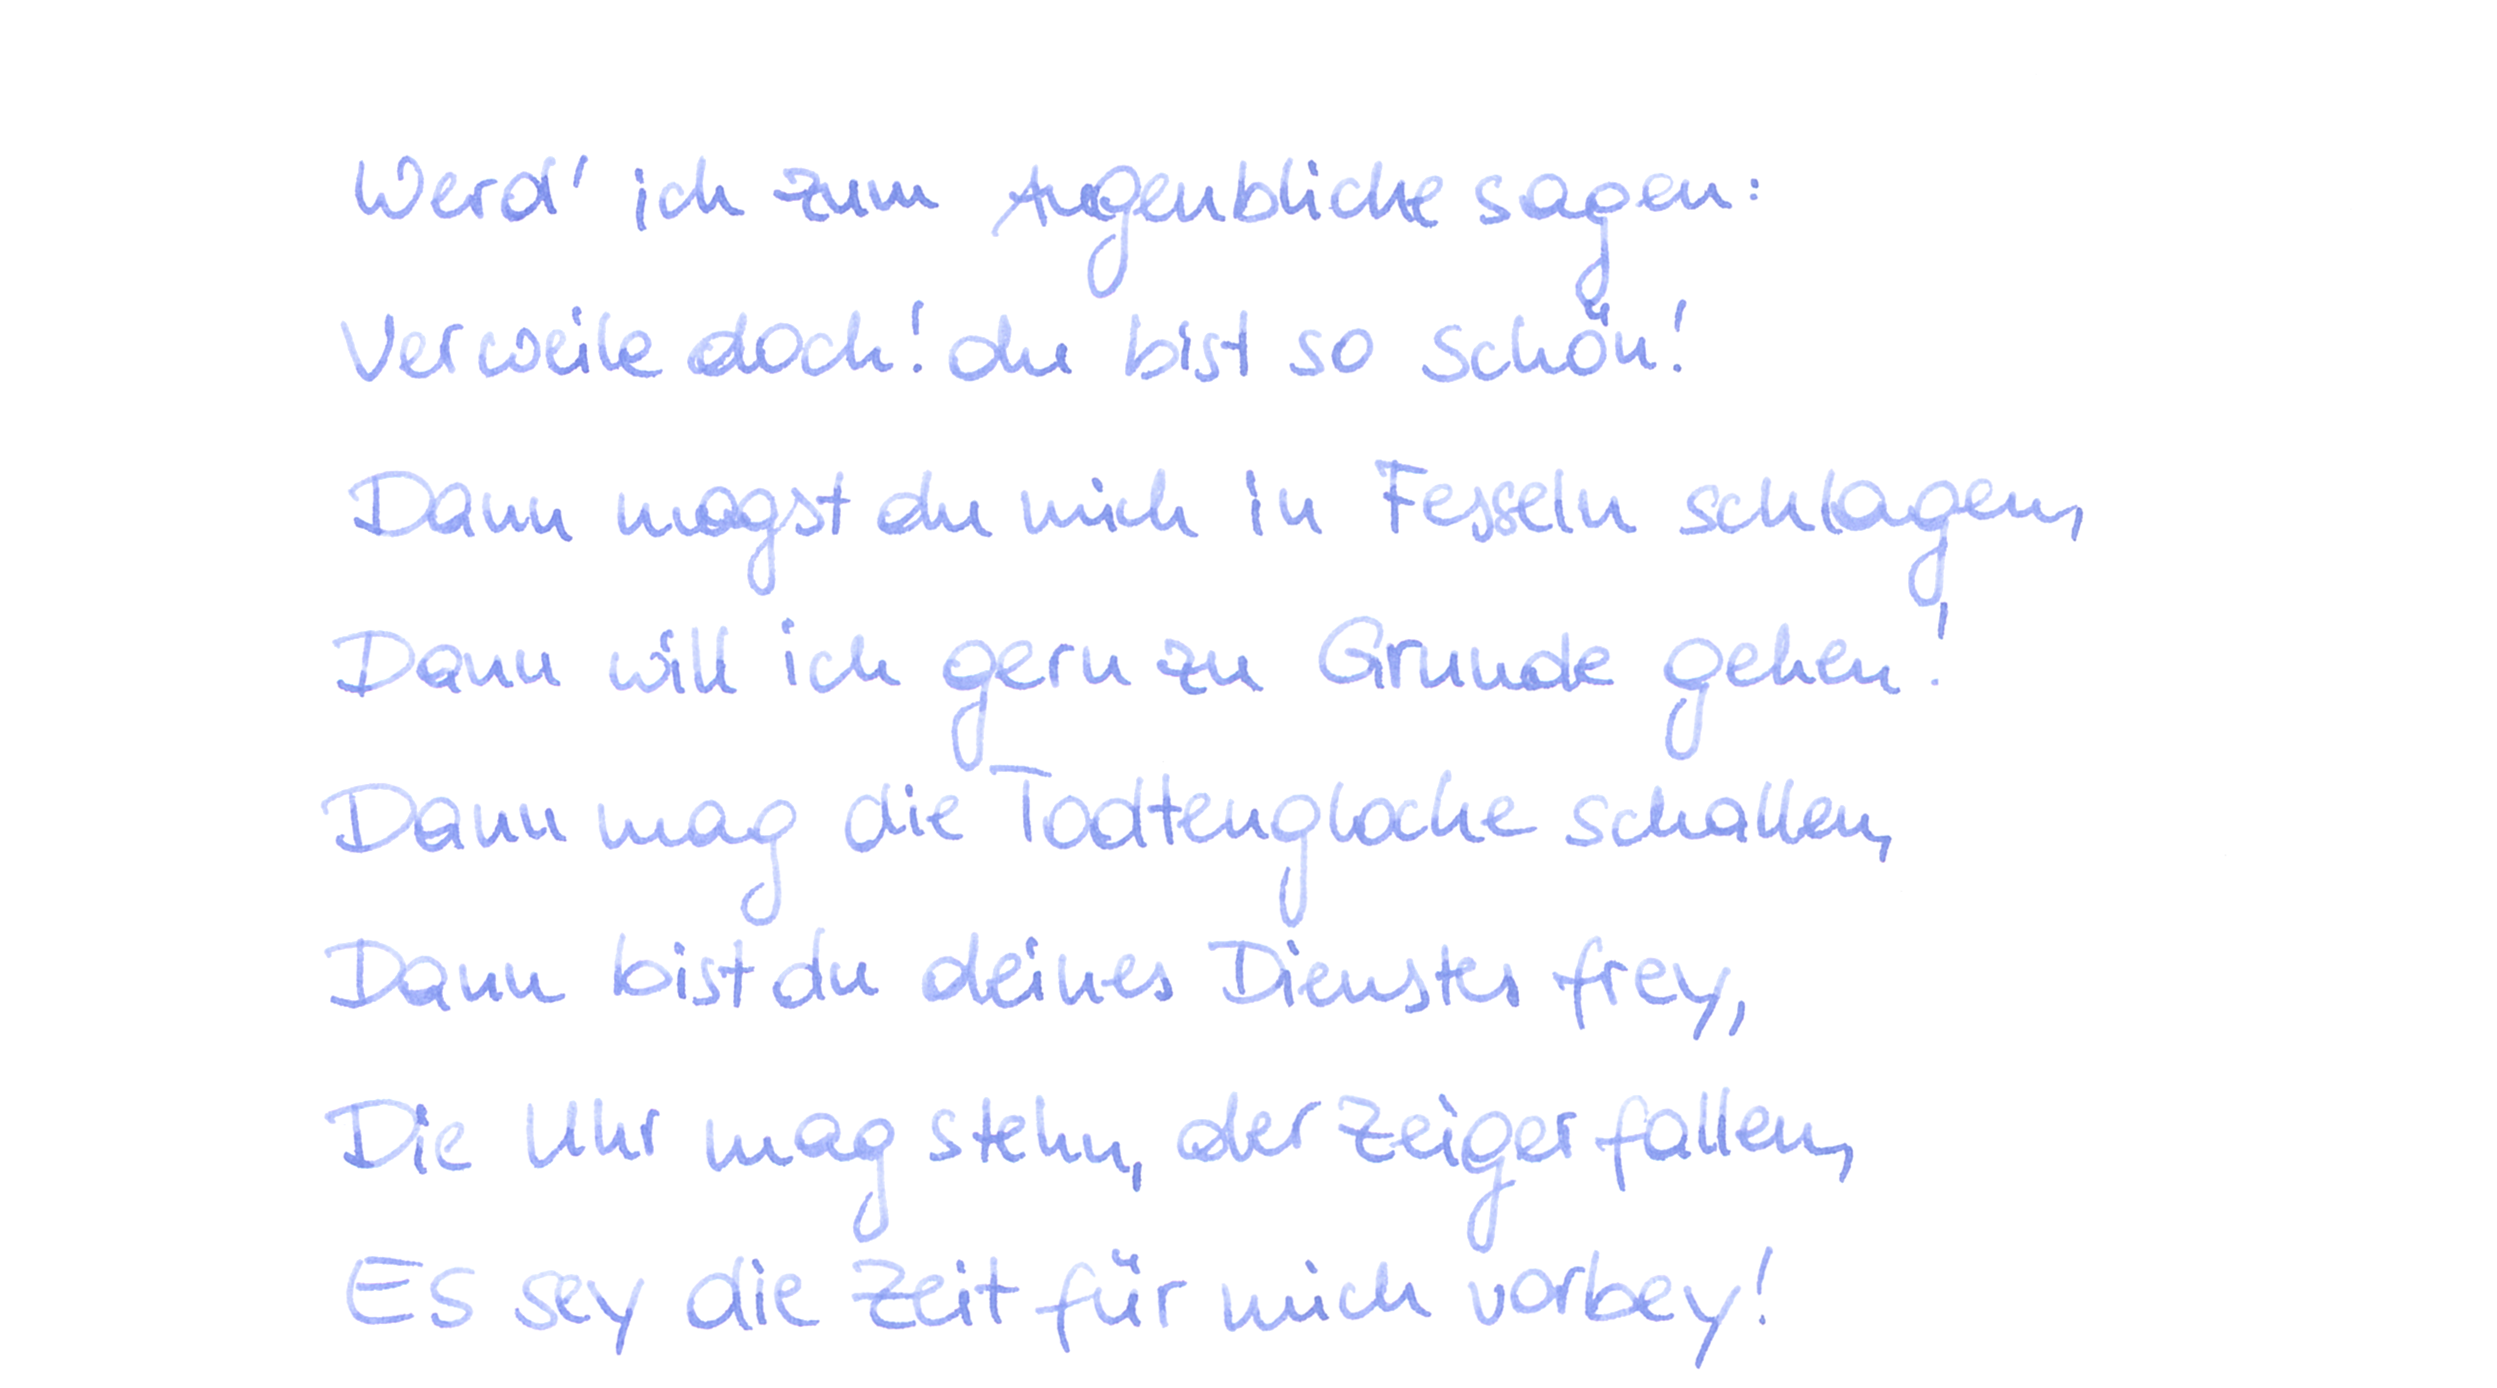 Werd' ich zum Augenblicke sagen:
Verweile doch! du bist so schön!
Dann magst du mich in Fesseln schlagen,
Dann will ich gern zu Grunde gehen!
Dann mag die Todtenglocke schallen,
Dann bist du deines Dienstes frey,
Die Uhr mag stehn, der Zeiger fallen,
Es sey die Zeit für mich vorbey!